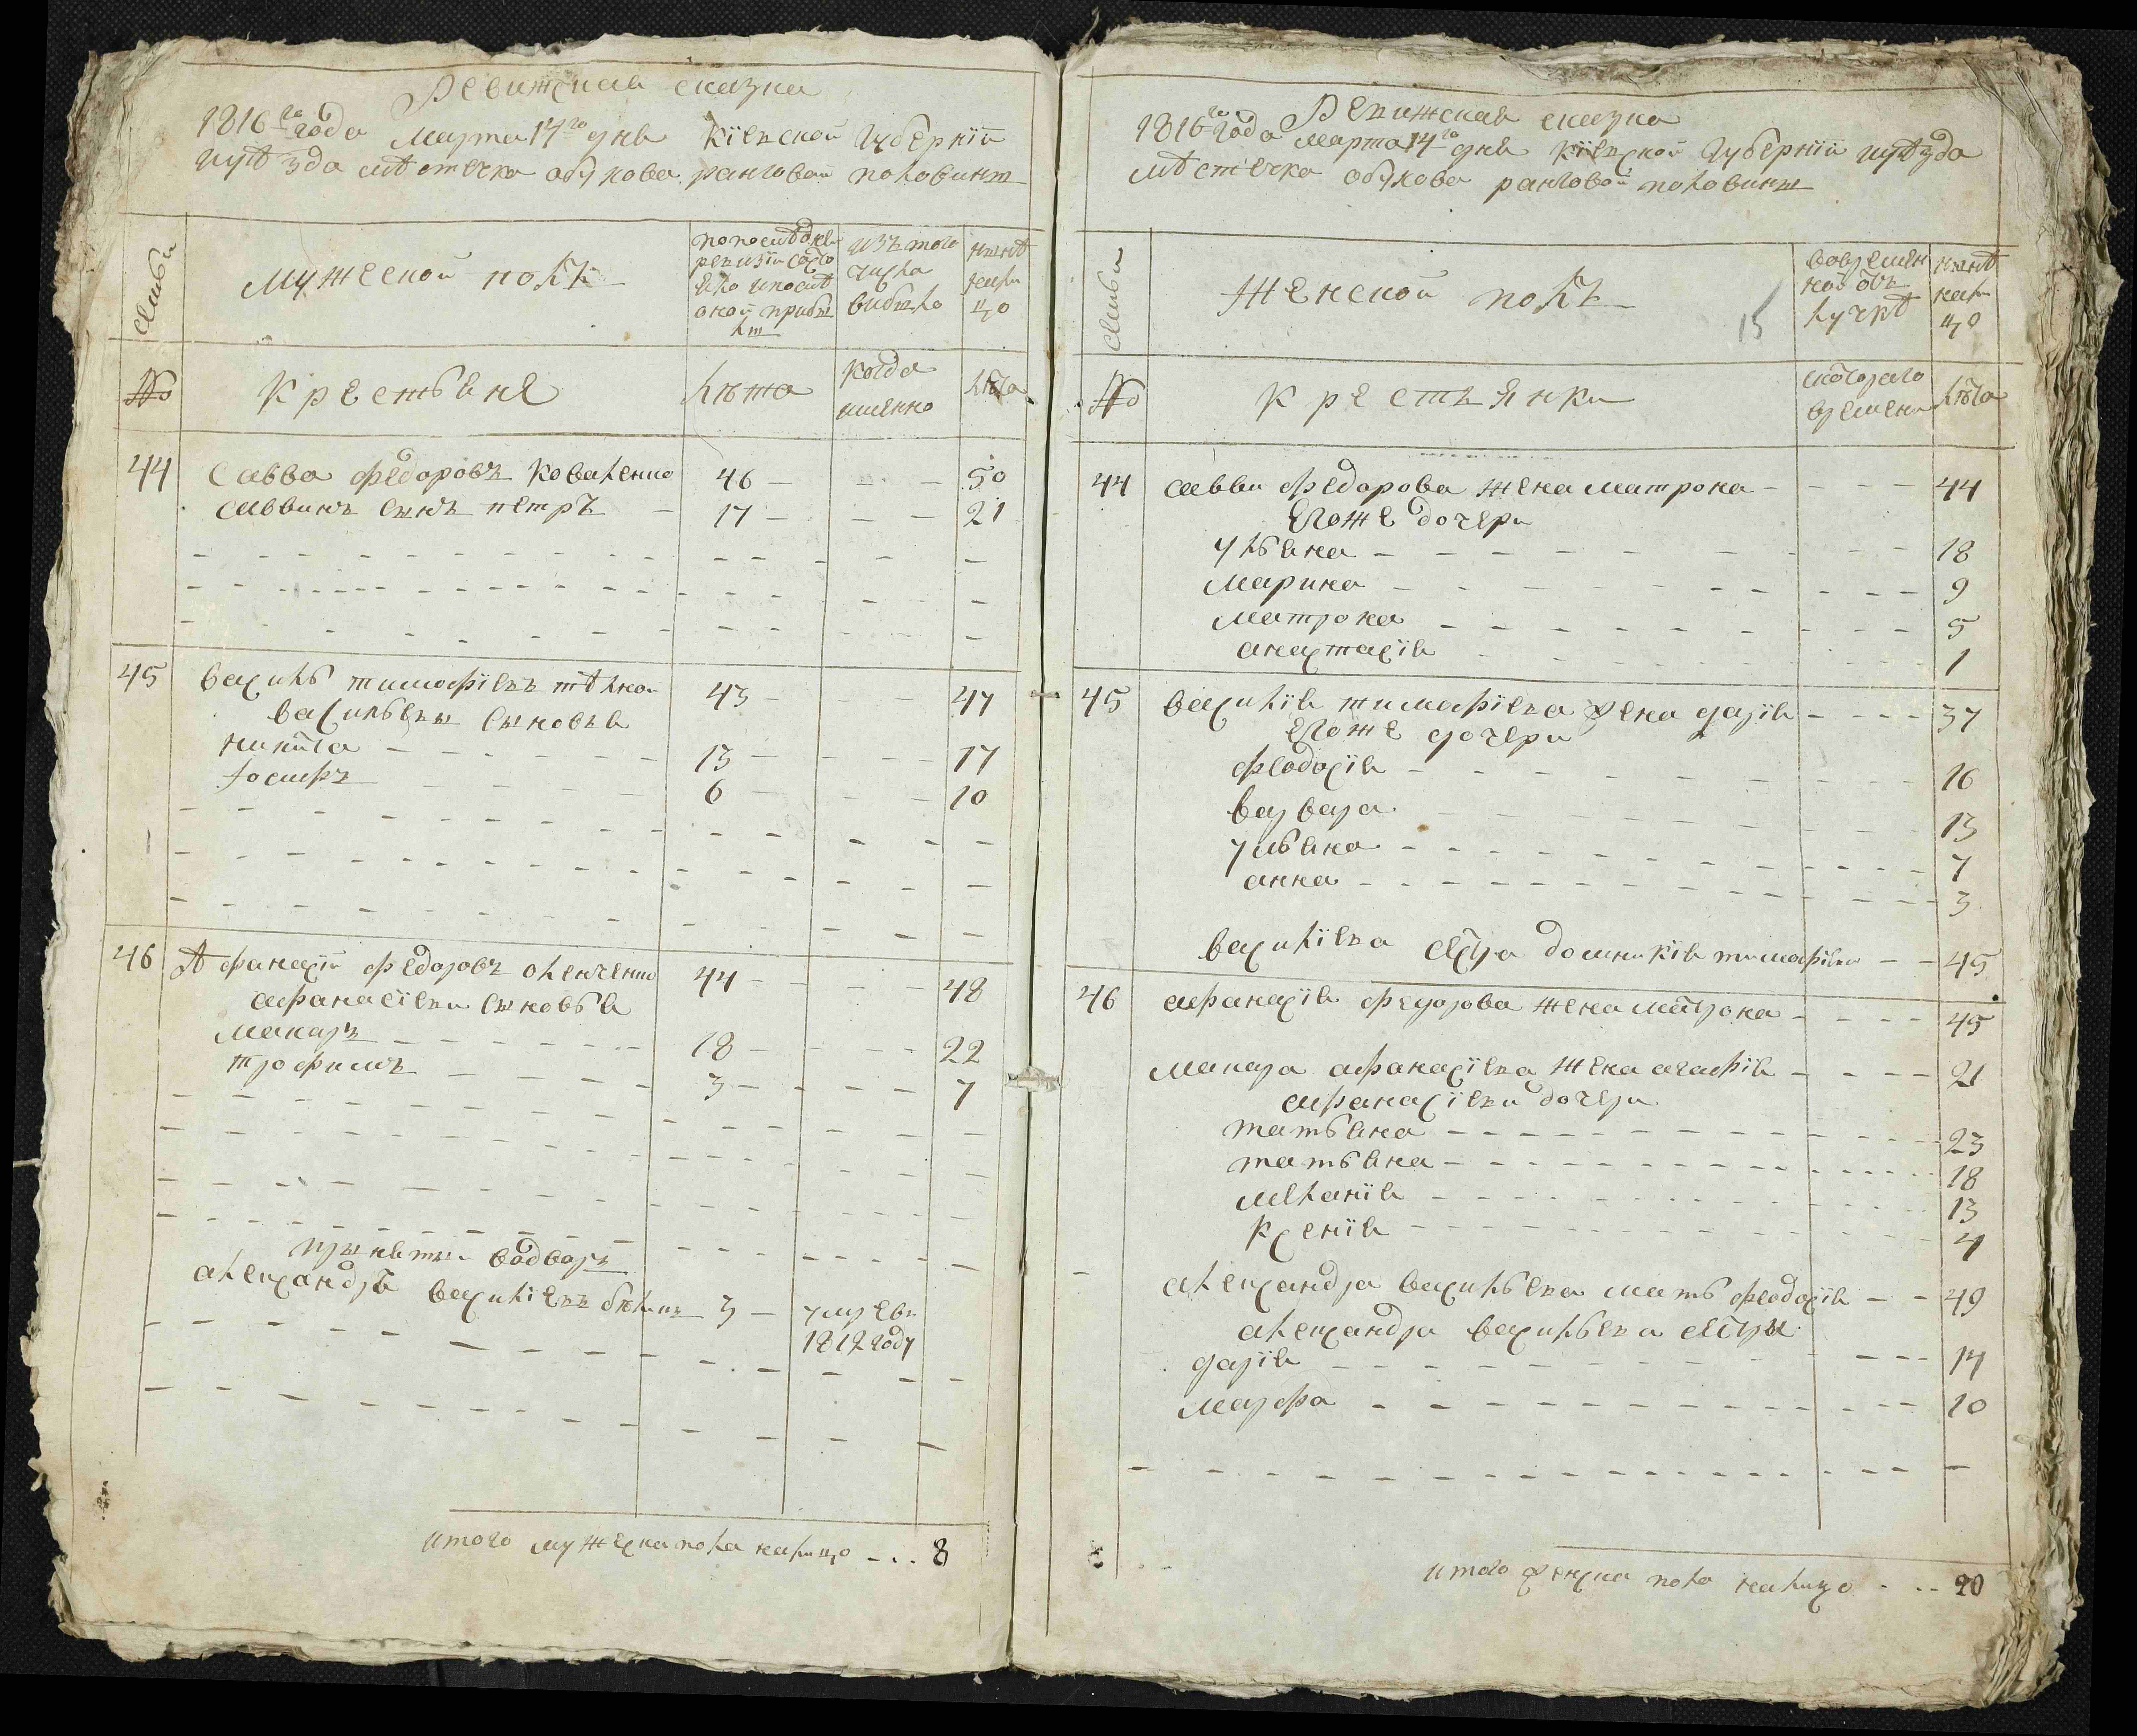 Ревижская сказка
1816го года марта 14го дня Кіевской Губерніи
и уѣзда мѣстечка обухова ранговой половины
семьи
мужеской полъ
по последней
ревизіи состо
яло и после
оной прибы
лы
изъ того
числа
выбыло
нынѣ
на ли
цо
№
Крестьяне
лѣта
когда
именно
лѣта
44 Савва федоровъ Коваленко 46 — — — 50
саввинъ сынъ петръ — 17 — — — 21
45 василь тимофіевъ 43 — — 47
васильевы сыновья
никита — 13 — — 17
іосифъ — 6 — — 10
46 Афанасій федоровъ оленченко 44 — — — 48
афанасіевы сыновья
макаръ — 18 — — 22
трофимъ — 3 — — 7
прынятый водворъ
александръ василіевъ 3 — умре въ
1812 году
итого мужеска пола налицо - - - 8
Ревижская сказка
1816го года марта 14го дня Кіевской Губерніи и уѣзда
мѣстечка обухова ранговой половины
семьи
женской полъ
15
во времен
ной отъ
лучкѣ
нынѣ
нали
цо
№
Крестьянки
скотораго
времени
лѣта
44 саввы федорова жена матрона — 44
егоже дочери
ульяна — 18
марина — 9
матрона — 5
анастасія — 1
45 василія тимофіева жена дарія — 37
егоже дочери
феодосія — 16
варвара — 13
ульяна — 7
анна — 3
василіева сестра домникія тимофіева — 45
46 афанасія федорова жена матрона — 45
макара афанасіева жена агафія — 21
афанасіевы дочери
татьяна — 23
татьяна — 18
меланія — 13
Ксенія — 4
александра васильева мать феодосія — 49
александра васильева сестры
дарія — 14
марфа — 10
итого женска пола налицо - - - 20